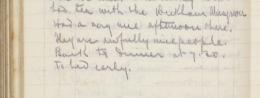 had tea with the
Had a very nice afternoon there.
They are awfully nice people.
Back to dinner at 7.30.
To bed early.